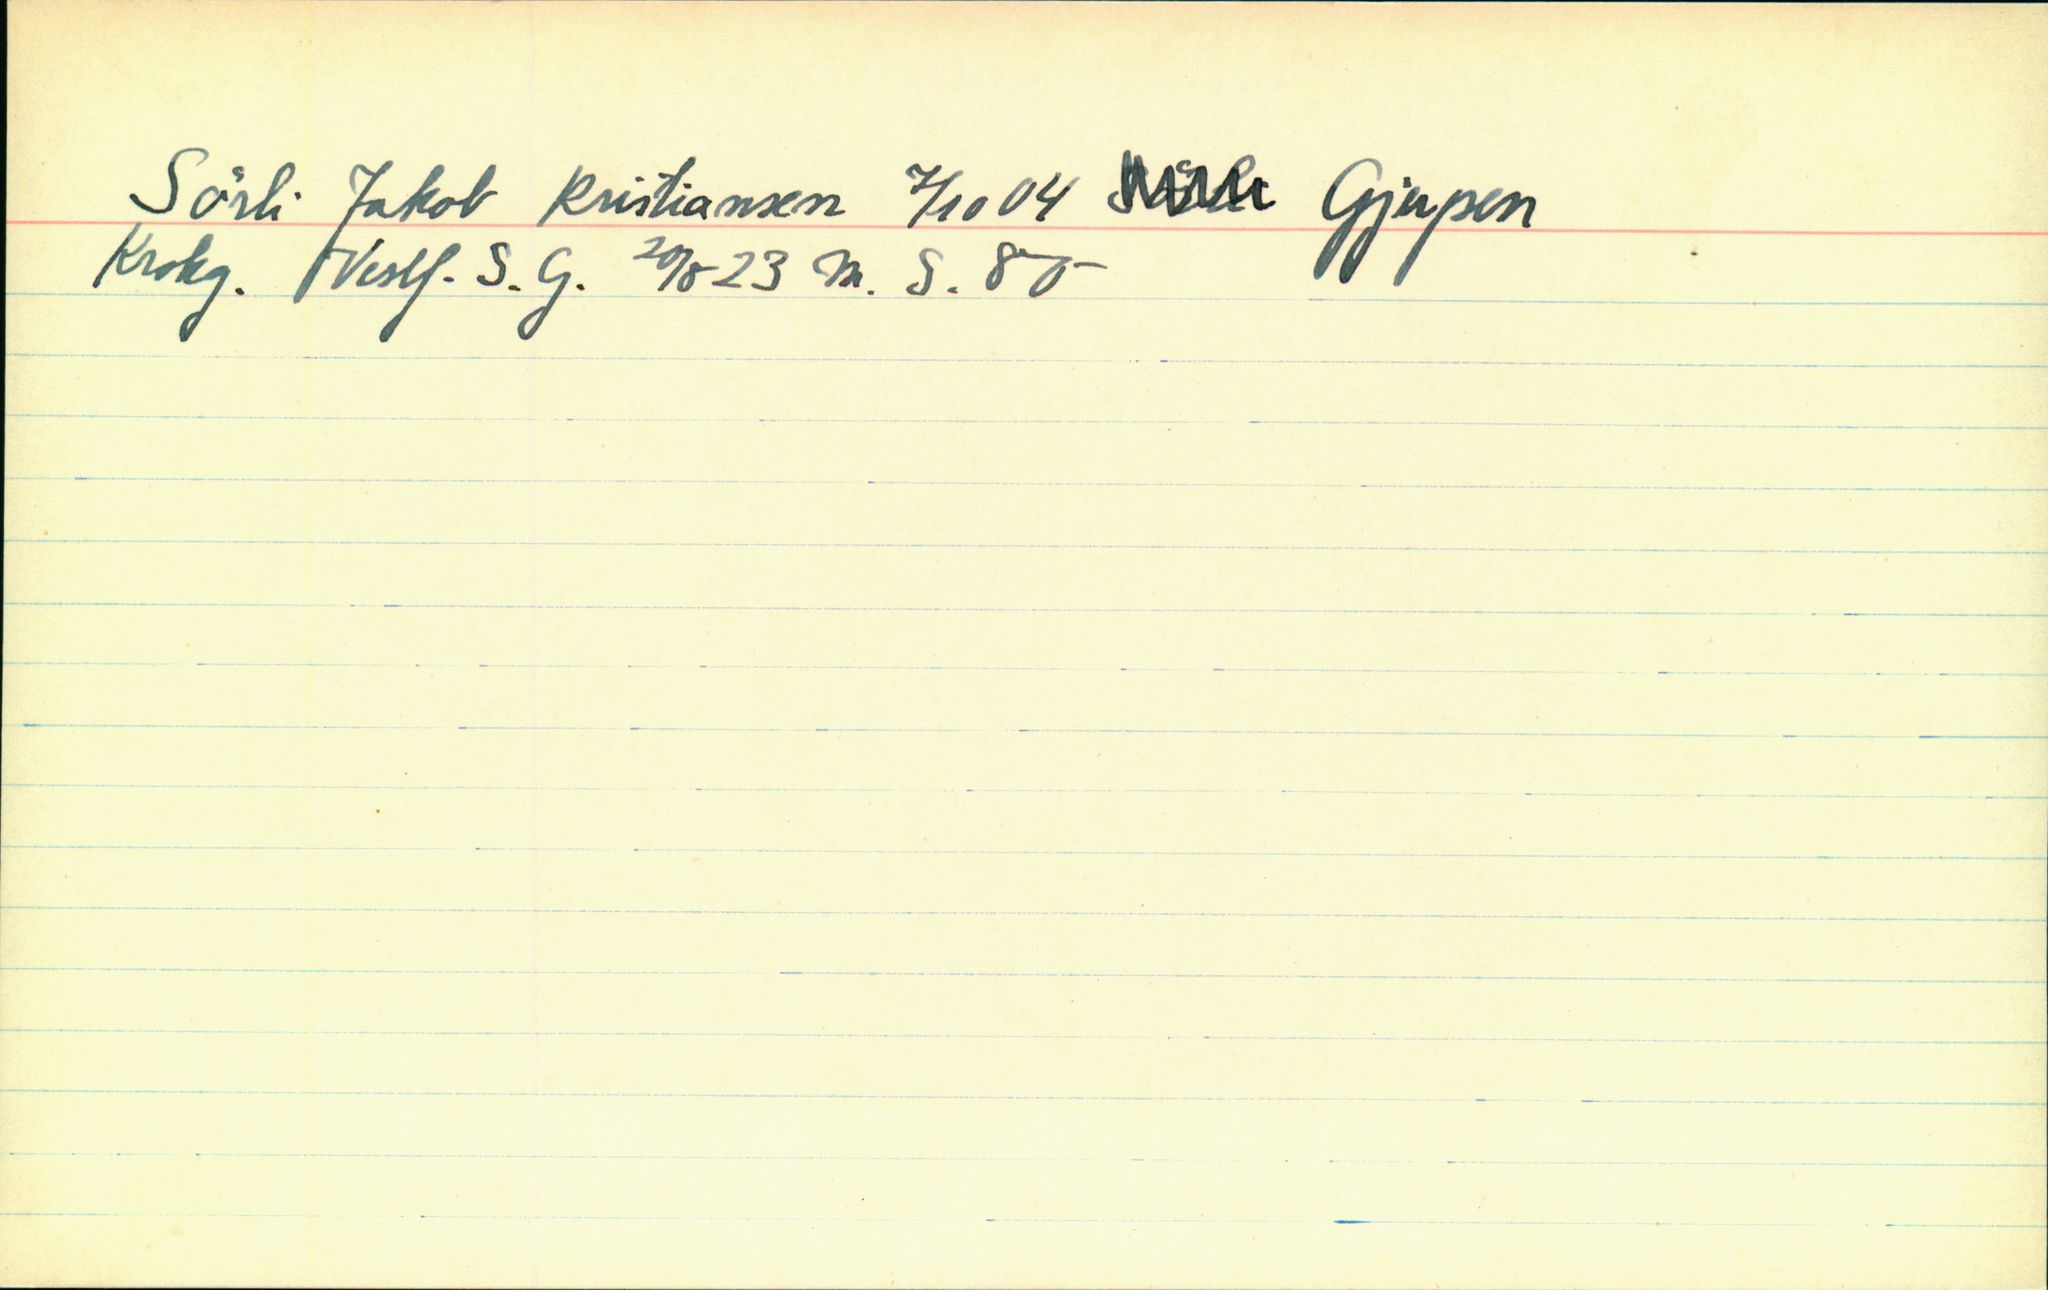 Sörli Jakob Kristiansen 7/10 04 Gjerpen
Krokg. Vestf. S. G. 20/8 23 M. S. 85